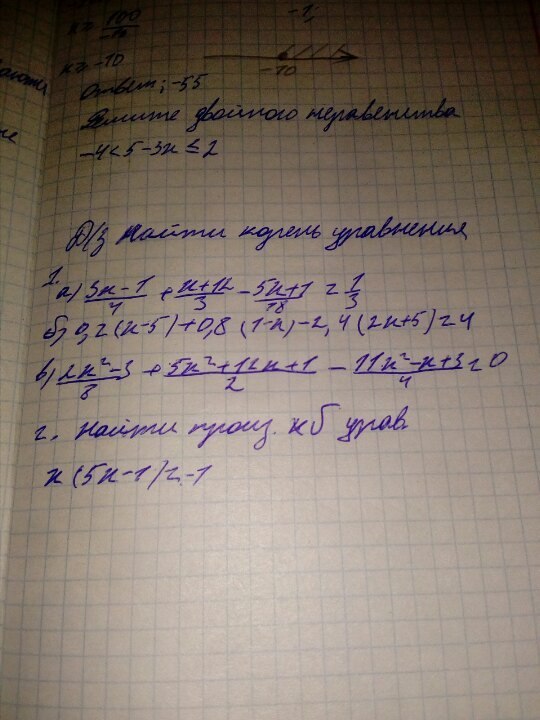 -1,
x ≥ 100
x ≥ -10
-10
Ответ: -55
Решите двойного неравенства
-4 < 5 - 3x ≤ 2
Д/з Найти корень уравнения
1.
а) 3x-1/4 + x+12/3 - 5x+1/18 = 1/3
б) 0,2(x-5)+0,8(1-x)-2,4(2x+5)=4
в) 2x²-3/8 + 5x²+12x+1/2 - 11x²-x+3/4 = 0
2. Найти произ. кб урав.
x(5x-1)=-1